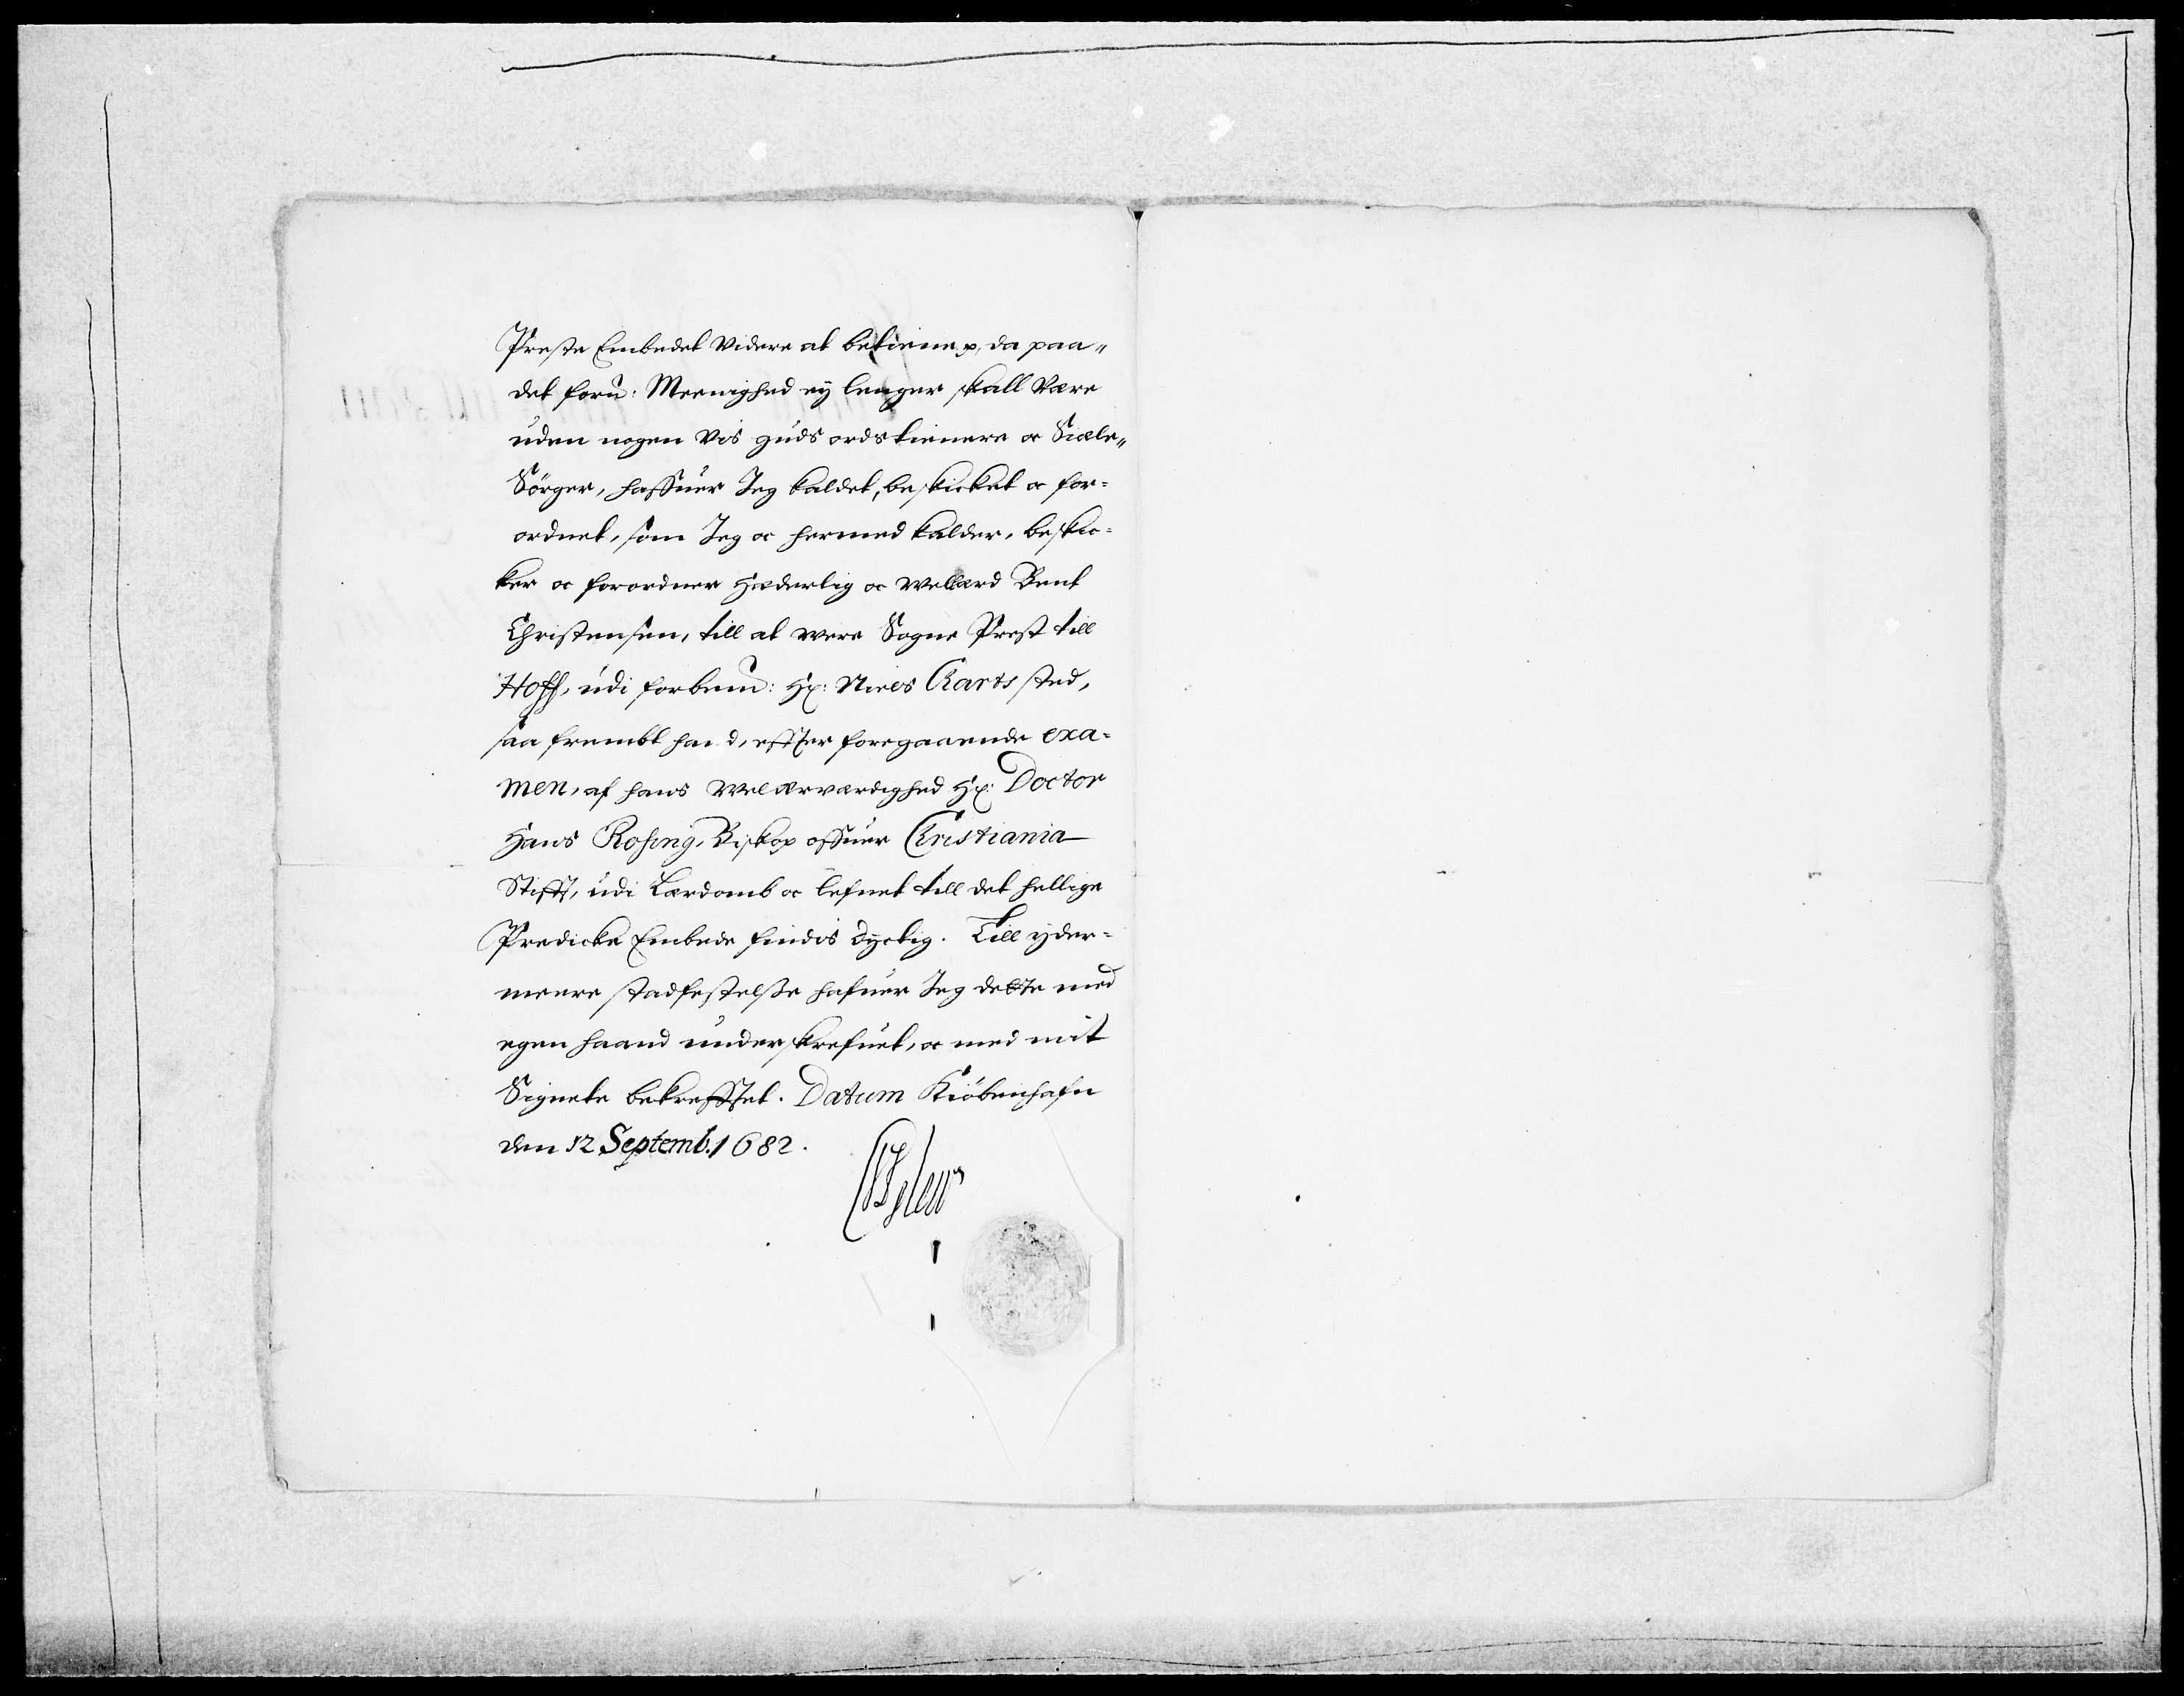 Preste Embedet Videre at betiene, da paa„
det forn: Meenighed ey lenger skall Være
uden nogen Vis guds ords tienere oc Siæle„
Sörger, haffuer Jeg kaldet, beskicket oc for-
ordnet, som Jeg oc hermed kalder, beskic-
ker oc forordner Hæderlig oc Wellærd Bent
Christensen, till at were Sogne Prest till
Hoff, udi forbem: Hr: Niels sted,
saa frembt hand, effter foregaaende exa-
men, af hans Welærværdighed Hr: Doctor
Hans Rosing, Biskop offuer Christiania
Stifft, udi Lærdomb oc lefnet till det hellige
Predicke Embede findis dyctig. Till yder-
meere stadfestelse hafuer Jeg dette med
egen haand underskrefuet, oc med mit
Signete bekrefftet. Datum Kiöbenhafn
den 12 Septemb. 1682.